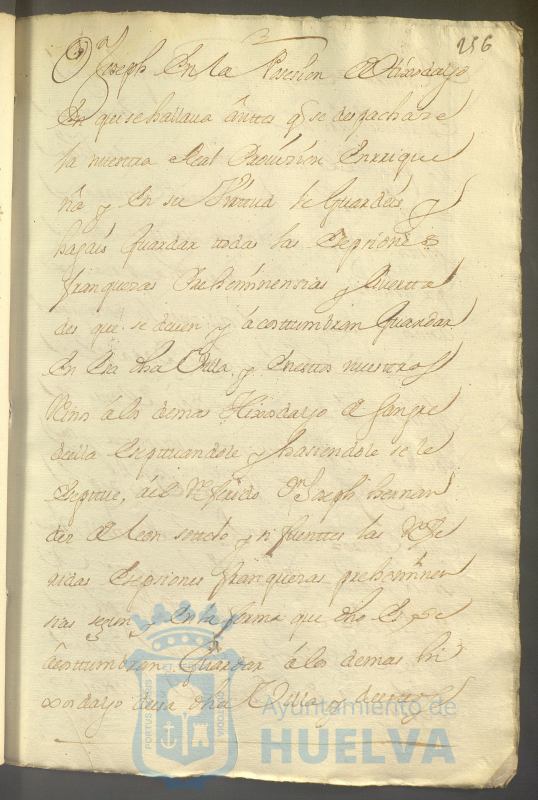 256
Dn Joseph En la Posesion de Hixodalgo
En que se hallava antes q se despachare
la nuestra Real Provision Enrrique
ña y En su Virtud le Guardeis y
hagais Guardar todas las Esepciones
franquezas Preheminensias y Liverta
des que se deven y acostumbran Guardar
En Esa dha Villa, y En estos nuestros
Rnos a los demas Hixosdalgo de Sangre
de ella Exsptuandole y hasiendole se le
Exsptue, del Referido Dn Joseph hernan
dez de Leon sotelo y fuentes las Refe
ridas Esepciones franquezas preheminen
sias segun y En la forma que dho Es y se
acostumbran Guardar a los demas hi
xosdalgo de esa dha Villa y de estos
PORTUS MARIS
Ayuntamiento de
HUELVA